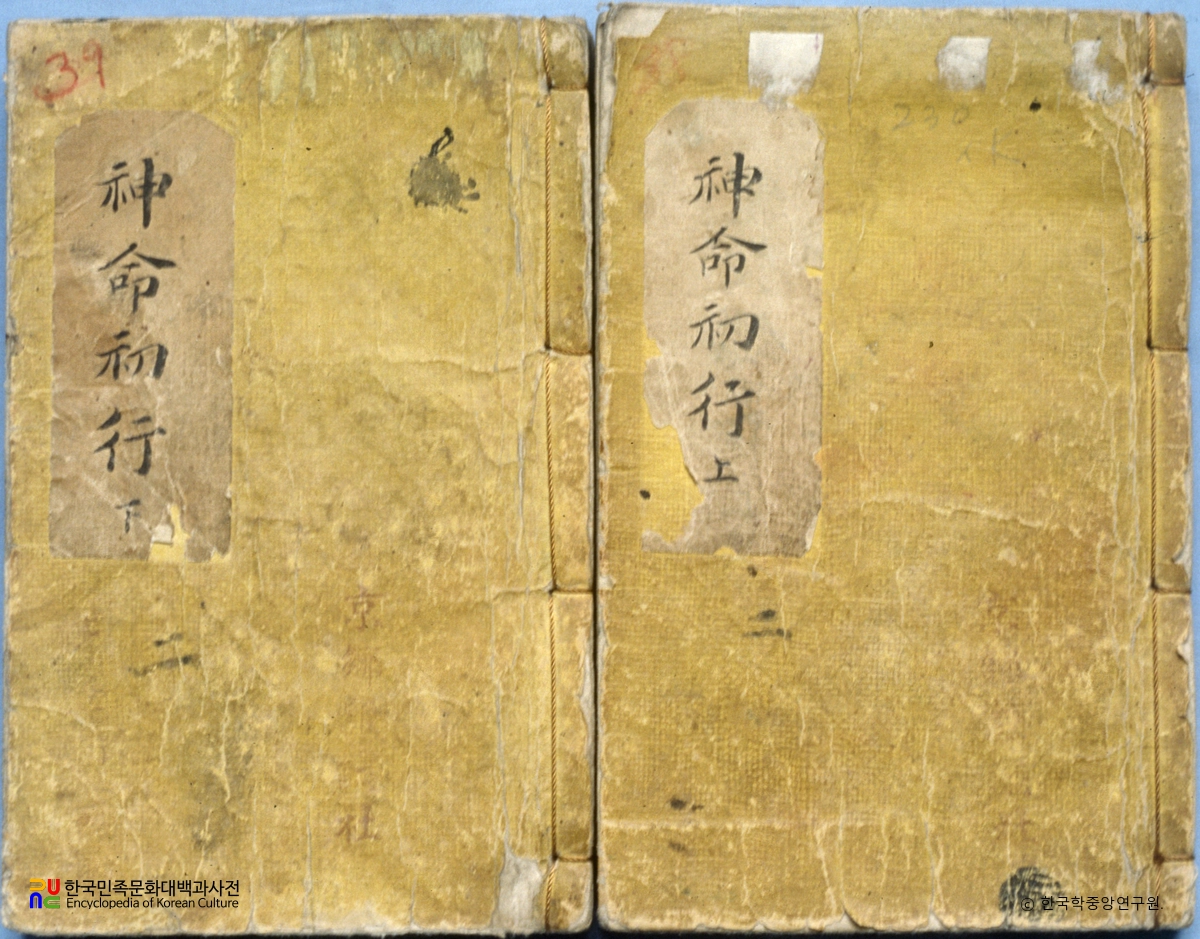 神命初行上
二
230
39
神命初行下
二
京
社
한국민족문화대백과사전
Encyclopedia of Korean Culture
© 한국학중앙연구원.